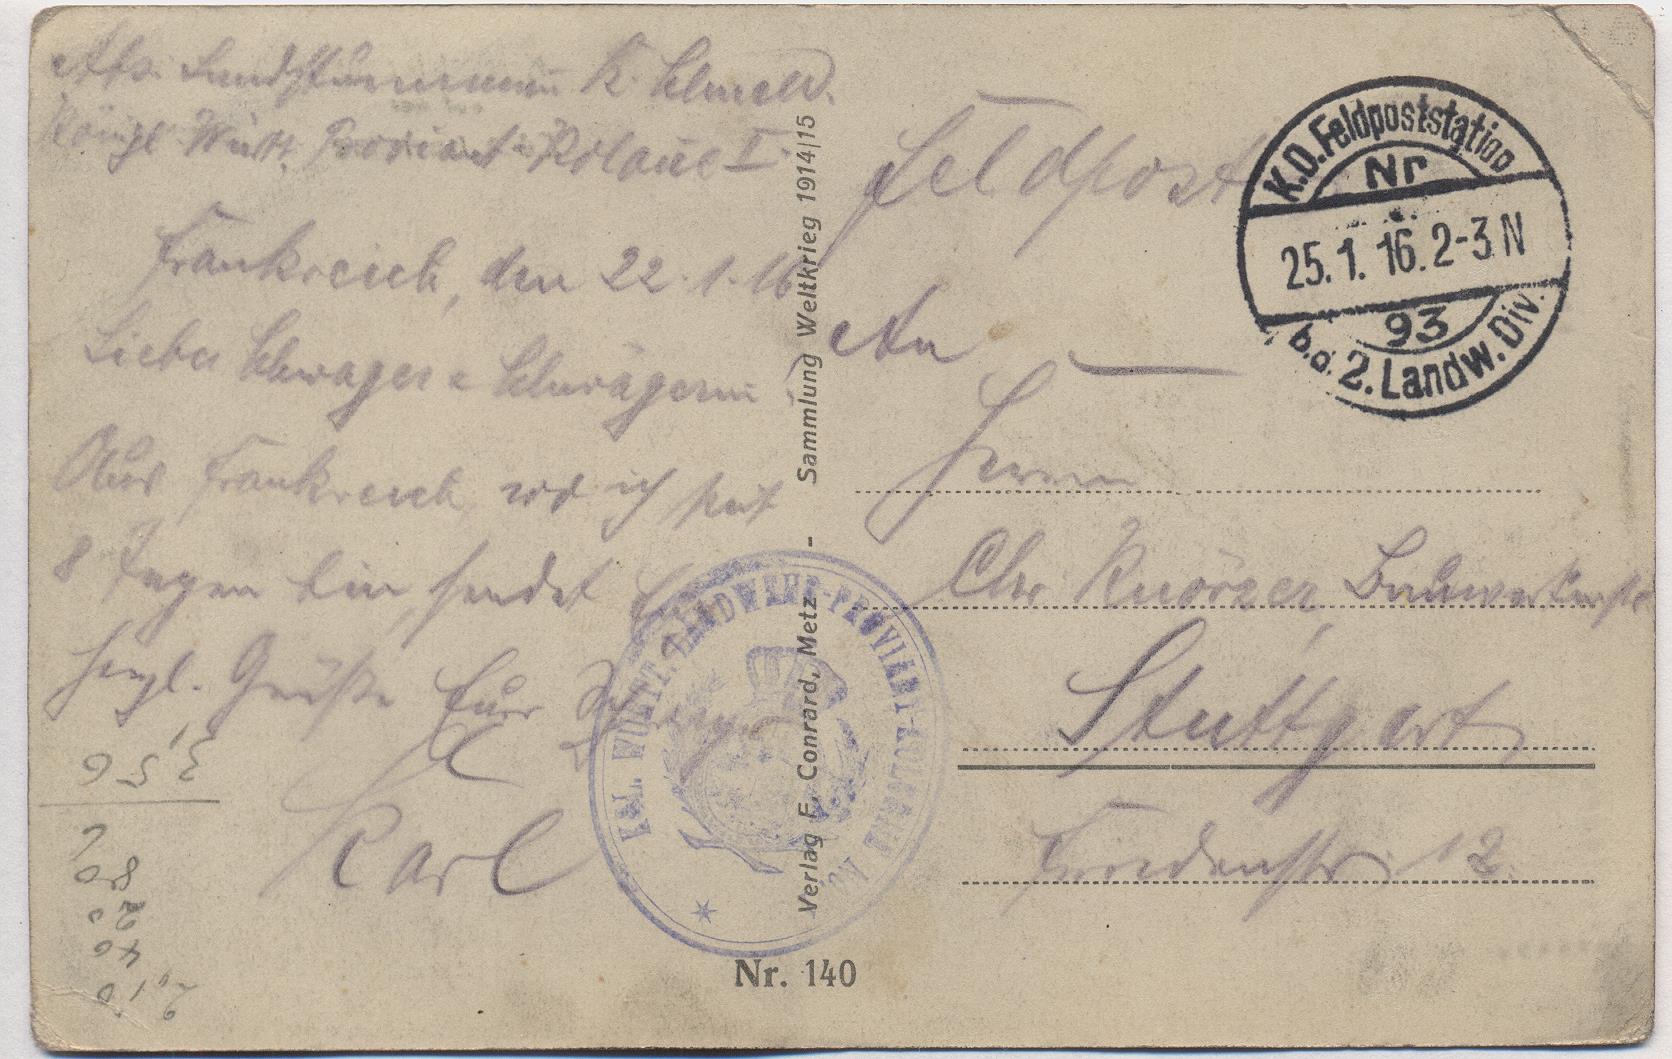 Abs. Landsturmmann K. Schmeld.
Königl Württ. Proviant-Kolone I.
Frankreich, den 22.1.16
Lieber Schwager u Schwägerin!
Aus Frankreich, wo ich seit
8 Tagen bin, sendet
herzl. Grüße Euer Schwager
Karl
Sammlung Weltkrieg 1914|15
Verlag E. Conrard, Metz -
Nr. 140
KGL. WÜRTT. LANDWEHR-PROVIANT-KOLONNE No.
Feldpost
K.D. Feldpoststation
Nr
25.1.16.2-3N
93
b.d. 2. Landw. Div.
An
Herrn
Chr Knörzer,
Stuttgart
12
3,56
6
80
20
40